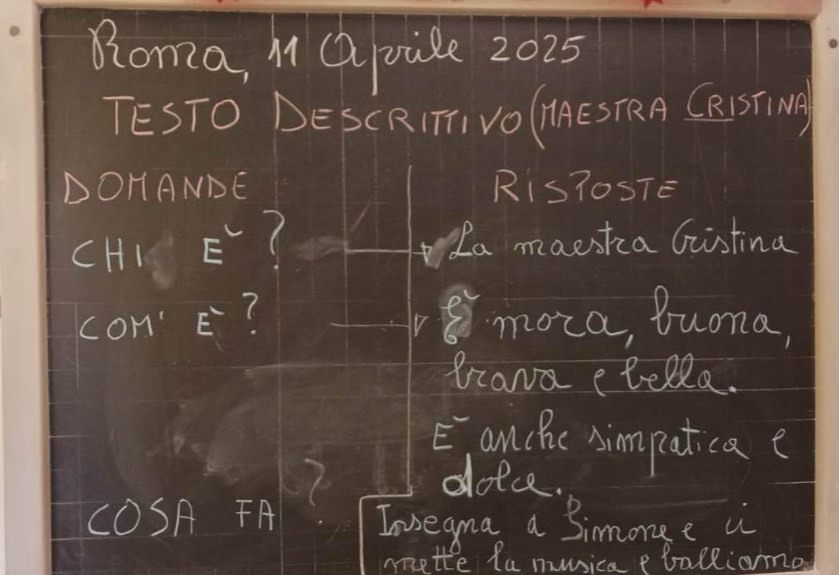 Roma, 11 Aprile 2025
TESTO DESCRITTIVO (MAESTRA CRISTINA)
DOMANDE RISPOSTE
CHI È? La maestra Cristina
COM' È? È mora, buona,
brava e bella.
È anche simpatica e
dolce.
COSA FA? Insegna a Simone e ci
mette la musica e balliamo